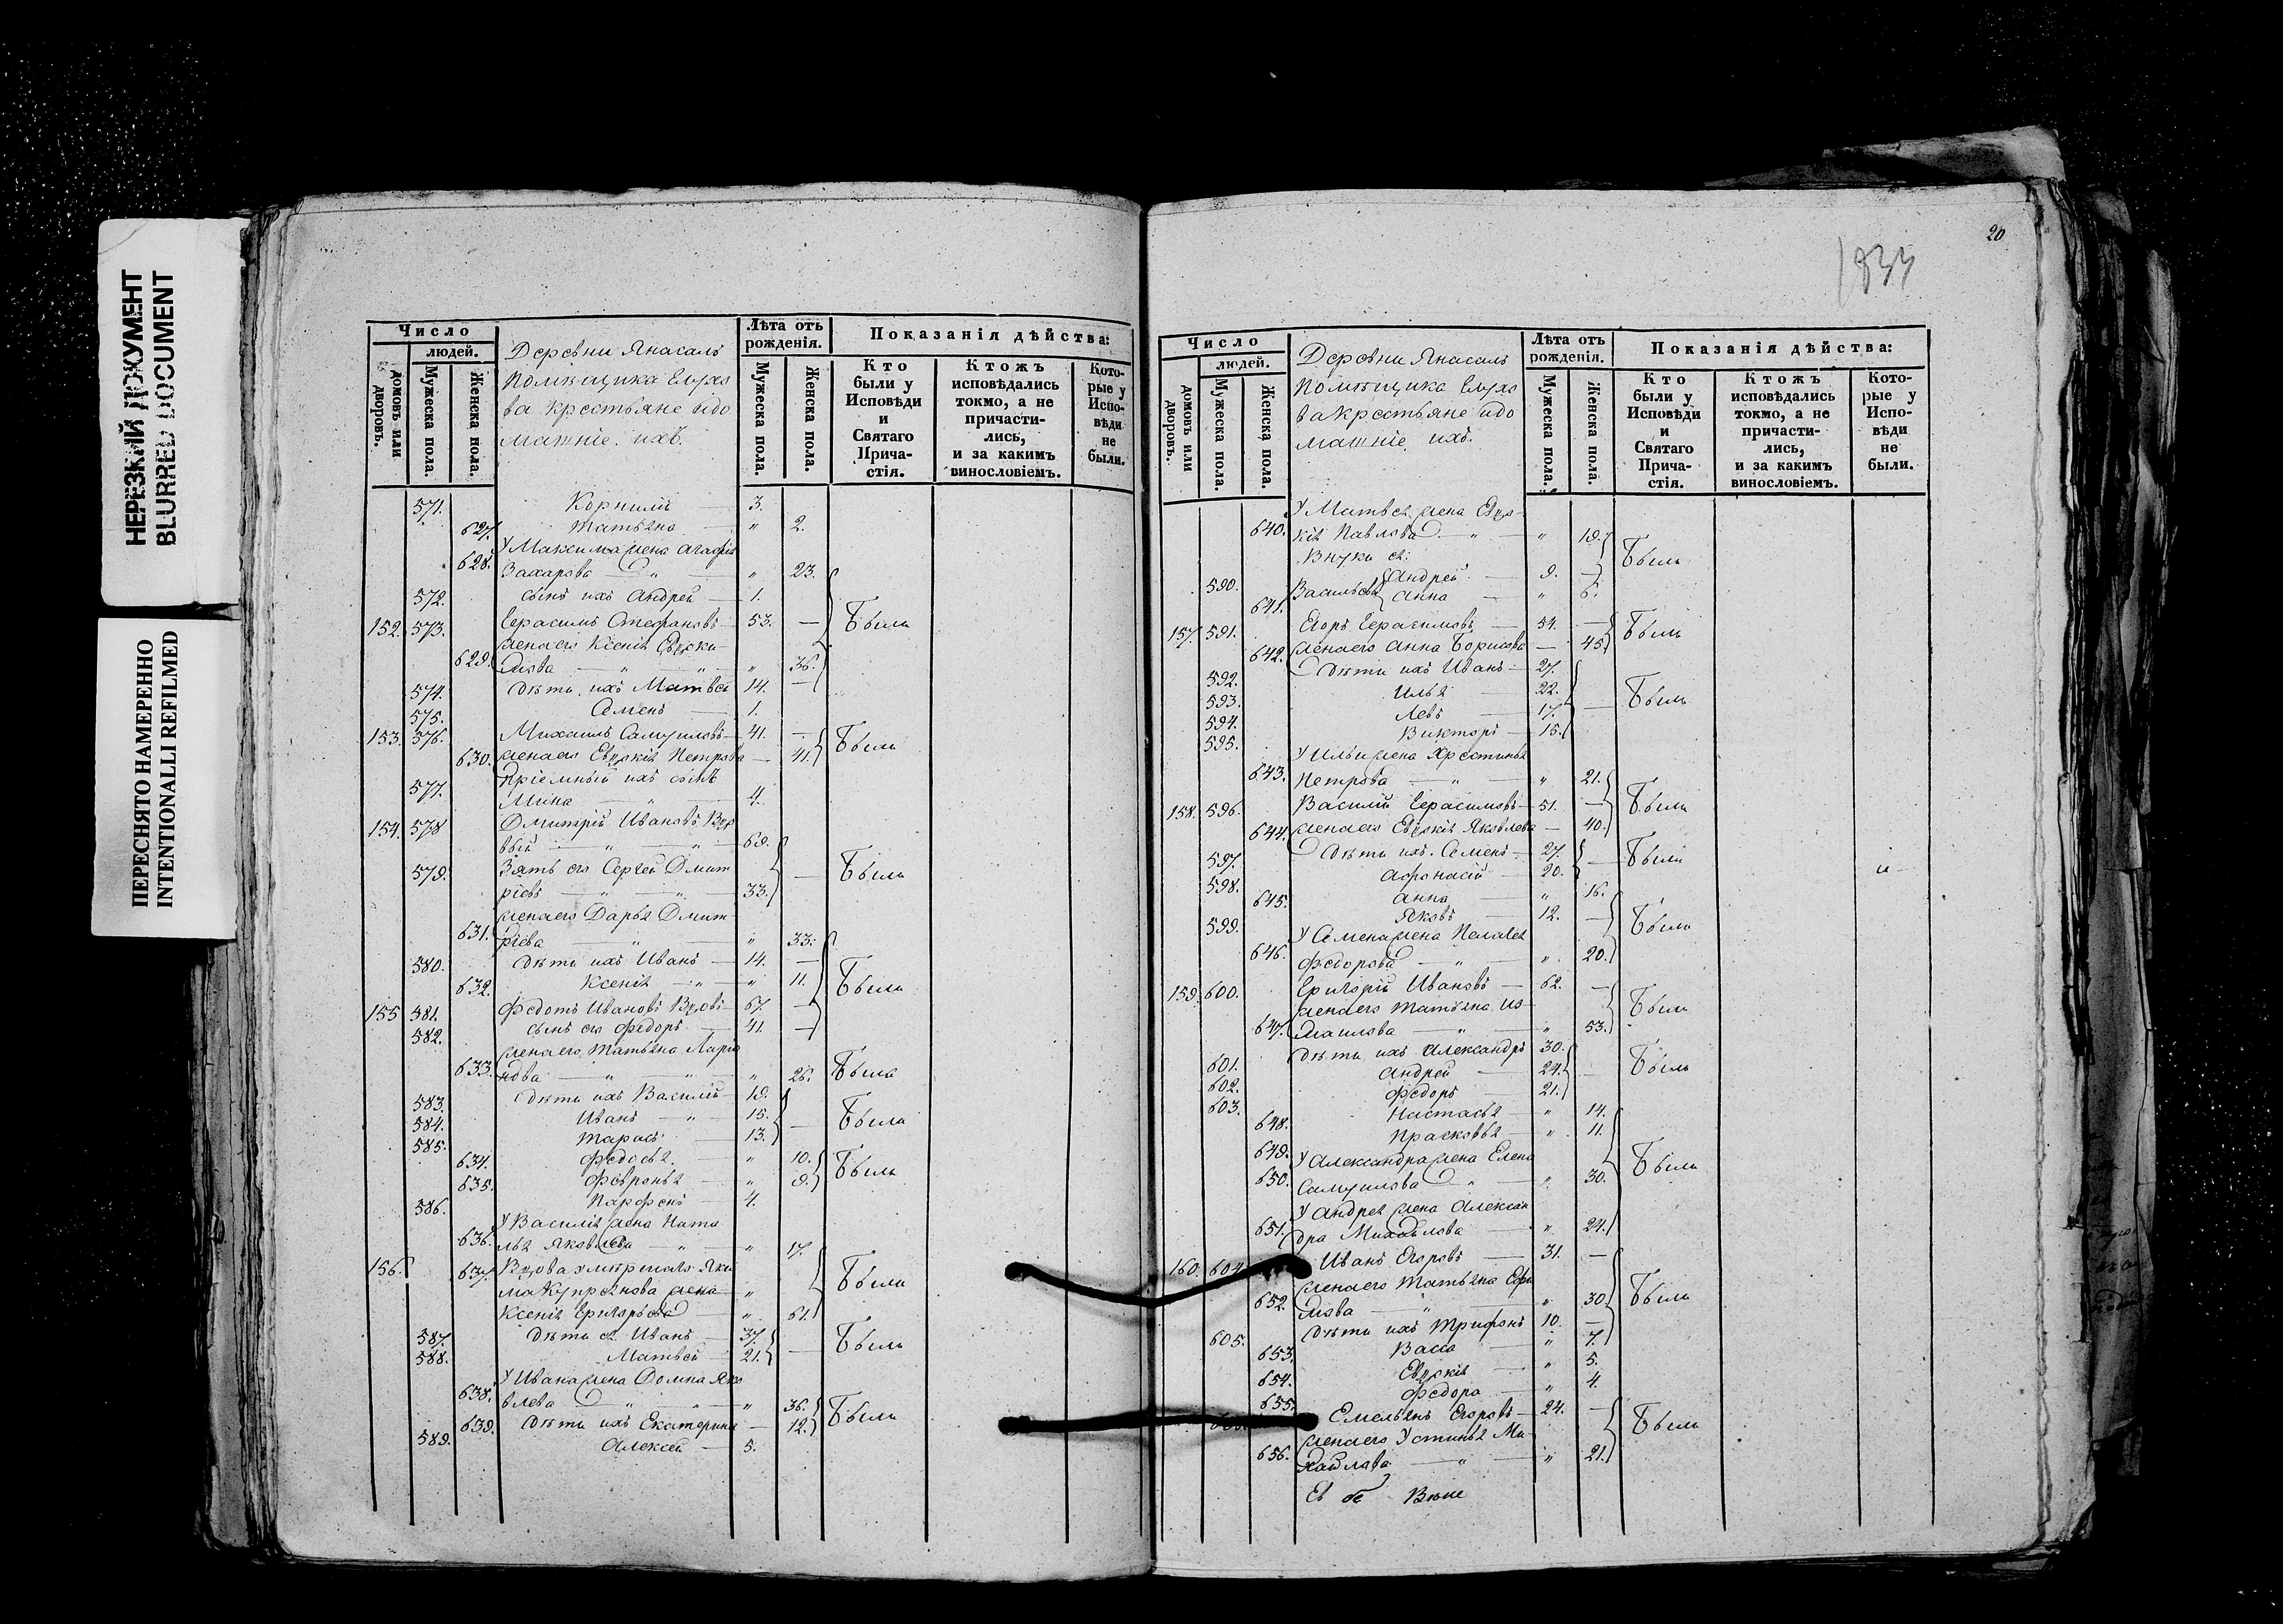 НЕРЕЗКИЙ ДОКУМЕНТ
BLURRED DOCUMENT
ПЕРЕСНЯТО НАМЕРЕННО
INTENTIONALLI REFILMED
Число
людей.
домовъ или дворовъ.
Мужеска пола.
Женска пола.
Деревни
Помѣщика
ва крестьяне идо
машніе ихъ.
Лѣта отъ рожденія.
Мужеска пола.
Женска пола.
Показанія дѣйства:
Кто были у Исповѣди и Святаго Прича-стія.
Ктожъ исповѣдались токмо, а не причасти-лись, и за какимъ винословіемъ.
Кото-рые у Испо-вѣди не были.
571. Корнилій — 3.
627. Татьяна — " 2.
У Максима жена Агафія
628. Захарова — " — " 23.
572. сынъ ихъ Андрей — 1.
152. 573. Герасимъ Стефановъ — 53. — Были
жена его Ксенія Евдки-
629. мова — " — " 36.
574. дѣти ихъ Матвей 14. —
575. Семенъ — 1.
153. 576. Михаилъ Самуиловъ — 41. — Были
630. жена его Евдокія Петрова — 41.
пріемный ихъ сынъ
577. Мина — " — 4.
154. 578 Дмитрій Ивановъ Вдо
вый — " — " — 69.
579. Зять его Сергей Дмит — Были
ріевъ — " — " — 33.
жена его Дарья Дмит-
631. ріева — " — " 33.
580. дѣти ихъ Иванъ — 14. —
632. Ксенія — " — " 11. Были
155 581. Федотъ Ивановъ Вдовъ — 67. —
582. сынъ его Федоръ — 41. —
жена его Татьяна Ларио
633. нова — " — " — " 26. Была
583. дѣти ихъ Василій — 19.
584. Иванъ — " 15. — Были
585. Тарасъ — 13.
634. Федосья — " 10. Были
635. Февронья — " 9.
586. Парфенъ 4.
У Василія жена Ната
636. лья Яковлева — " — " 17.
156. 637. Вдова умершаго Яки
ма Купреянова жена — " Были
Ксенія Григорьева — " 61.
587. дѣти ея Иванъ — 37. Были
588. Матвей — 21.
У Ивана жена Домна Яко
638. влева — " — " — " 36.
639. дѣти ихъ Екатерина — 12. Были
589. Алексей — 5.
20
1833
Число
людей.
домовъ или дворовъ.
Мужеска пола.
Женска пола.
Деревни
Помѣщика
ва крестьяне идо
машніе ихъ.
Лѣта отъ рожденія.
Мужеска пола.
Женска пола.
Показанія дѣйства:
Кто были у Исповѣди и Святаго Прича-стія.
Ктожъ исповѣдались токмо, а не причасти-лись, и за какимъ винословіемъ.
Кото-рые у Испо-вѣди не были.
У Матвея жена Евдо-
640. кія Павлова — " — " 19.
Внуки ея: Были
590. Васильевы Андрей — 9. —
641. Анна — " 6.
157. 591. Егоръ Герасимовъ — 54. — Были
642. жена его Анна Борисова — 45
592. дѣти ихъ Иванъ — 27.
593. Илья — 22. — Были
594. Левъ — 17.
595. Викторъ — 15.
У Ильи жена Хрестинья
643. Петрова — " — " 21.
158. 596. Василій Герасимовъ — 51. — Были
644. жена его Евдокія Яковлева — 40.
597. дѣти ихъ Семенъ — 27. — Были
598. Афонасій — 20.
645. Анна — " 16.
599. Яковъ — 12. — Были
У Семена жена Пелагея
646. Федорова — " — " 20.
159. 600. Григорій Ивановъ — 62. — Были
жена его Татьяна Из-
647. маилова — " — " 53.
601. дѣти ихъ Александръ 30.
602. Андрей — 24. — Были
603. Федоръ — 21.
648. Настасья — " 14.
649. Прасковья — " 11.
У Александра жена Елена Были
650. Самуилова — " — " 30.
У Андрея жена Алексан
651. дра Михайлова — " 24.
160. 604. Иванъ Егоровъ — 31. —
жена его Татьяна Ефи
652. мова — " — " 30 Были
605. дѣти ихъ Трифонъ 10. —
653. Васса — " 7.
654. Евдокія — " 5.
655. Федора — " 4.
Емельянъ Егоровъ — 24. — Были
жена его Устинья Ми-
656. хайлова — " — " 21.